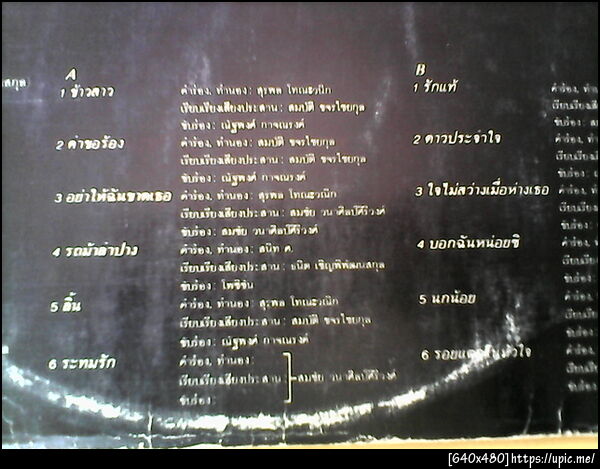 A
1 ข้าวสาว
คำร้อง, ทำนอง : สุรพล โทณะวณิก
เรียบเรียงเสียงประสาน : สมบัติ ขจรไชยกุล
ขับร้อง : ณัฐพงศ์ กาจณรงค์
2 คำขอร้อง
คำร้อง, ทำนอง : สมบัติ ขจรไชยกุล
เรียบเรียงเสียงประสาน : สมบัติ ขจรไชยกุล
ขับร้อง : ณัฐพงศ์ กาจณรงค์
3 อย่าให้ฉันขาดเธอ
คำร้อง, ทำนอง : สุรพล โทณะวณิก
เรียบเรียงเสียงประสาน : สมชัย วนาศิลป์ศิริวงศ์
ขับร้อง : สมชัย วนาศิลป์ศิริวงศ์
4 รถม้าลำปาง
คำร้อง, ทำนอง : สนิท ศ.
เรียบเรียงเสียงประสาน : ธนิต เชิญพิพัฒนสกุล
ขับร้อง : โพชิชัน
5 ลิ้น
คำร้อง, ทำนอง : สุรพล โทณะวณิก
เรียบเรียงเสียงประสาน : สมบัติ ขจรไชยกุล
ขับร้อง : ณัฐพงศ์ กาจณรงค์
6 ระทมรัก
คำร้อง, ทำนอง :
เรียบเรียงเสียงประสาน
ขับร้อง :
สมชัย วนาศิลป์ศิริวงศ์
B
1 รักแท้
2 ดาวประจำใจ
3 ใจไม่สว่างเมื่อห่างเธอ
4 บอกฉันหน่อยซิ
5 นกน้อย
6
[640x480]https://upic.me/